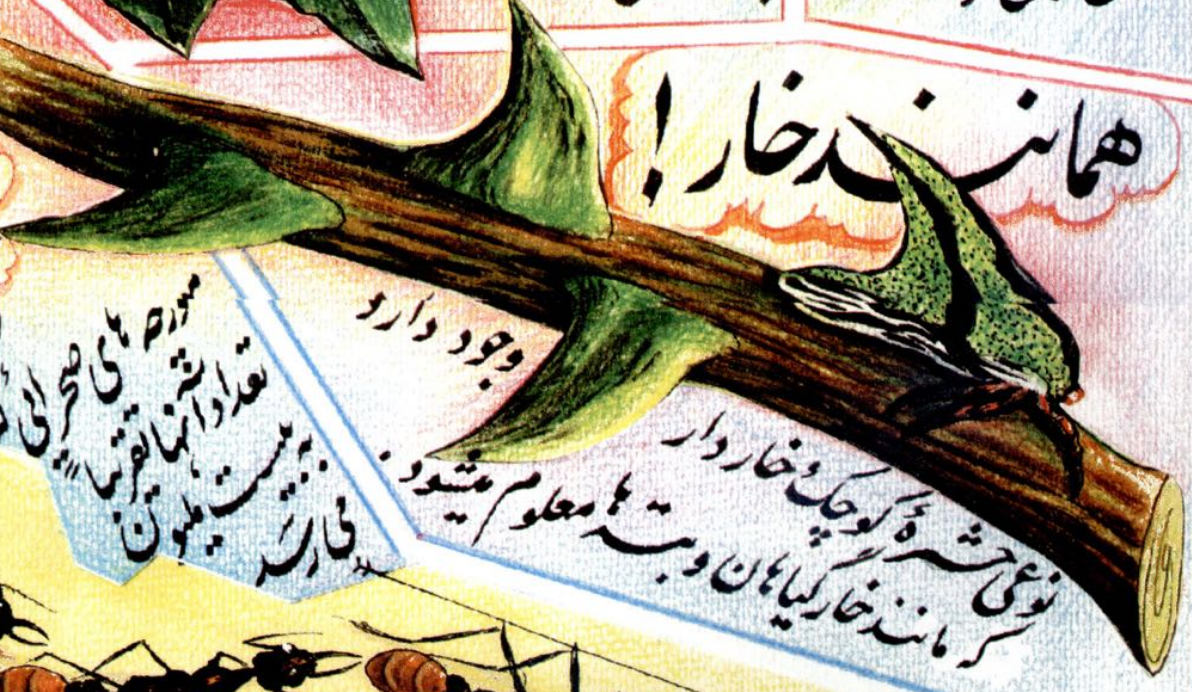 همانند خار !
نوعی حشرهٔ کوچک خاردار
وجود دارد
که مانند خار گیاهان و بته ها معلوم میشود.
مورچه های صحرائی
تعداد آنها تقریباً
به بیست ملیون
می رسد